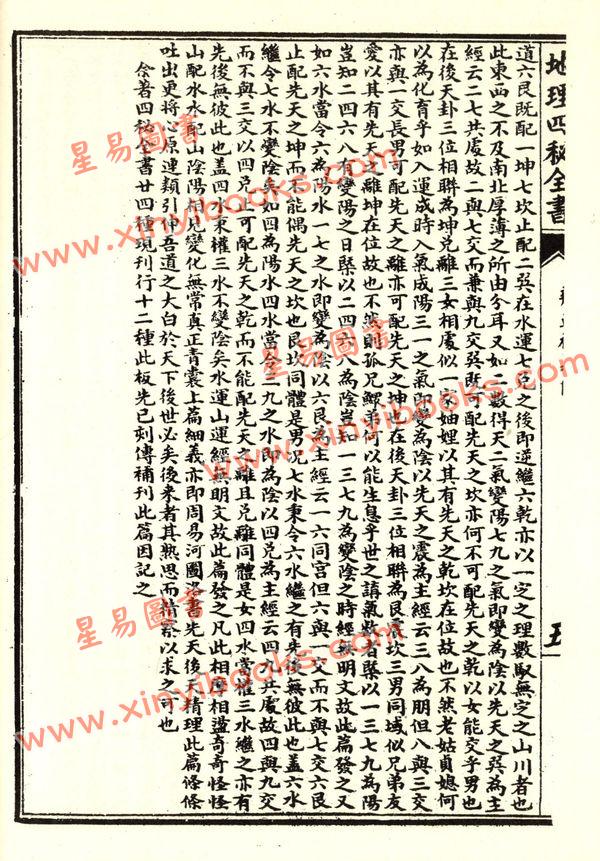 地理四秘全書
五
道六艮既配一坤七坎止配二巽在水運七兌之後即逆繼六乾亦以一定之理數馭無定之山川者也
此東西之不及南北厚薄之所由分耳又如二數得天二氣變陽七九之氣即變為陰以先天之巽為主
經云二七共處故二與七交而兼與九交巽既可配先天之坎亦何不可配先天之乾以女能交乎男也
在後天卦三位相聯為坤兌離三女相處似一家妯娌以其有先天之乾坎在位故也不然老姑員媳何
以為化育乎如入運成時入氣成陽三一之氣即變為陰以先天之震為主經云三八為朋但八與三交
亦與一交長男可配先天之離亦可配先天之坤也在後天卦三位相聯為艮震坎三男同域似兄弟友
愛以其有先天之離坤在位故也不然則孤兄鰥弟何以能生息乎世之講氣數者槩以一三七九為陽
豈知二四六八有變陽之日槩以二四六八為陰豈知一三七九為變陰之時經無明文故此篇發之又
如六水當令六為陽水一七之水即變為陰以六艮為主經云一六同宮但六與一交而不與七交六艮
止配先天之坤而不能偶先天之坎也艮坎同體是男况七水秉令六水繼之有先後無彼此也盖六水
繼令七水不變陰矣如四為陽水四水當令三九之水即為陰以四兌為主經云四九共處故四與九交
而不與三交以四兌止可配先天之乾而不能配先天之離且兌離同體是女四水當權三水繼之亦有
先後無彼此也盖四水秉權三水不變陰矣水運山運經無明文故此篇發之凡此相摩相盪奇奇怪怪
山配水水配山陰陽相見變化無常真正青囊上篇細義亦即周易河圖洛書先天後天精理此篇條條
吐出更將心原連類引伸吾道之大白於天下後世必矣後來者其熟思而精察以求之可也
余著四秘全書廿四種現刊行十二種此板先已刻傳補刊此篇因記之
星易圖書
www.xinyibooks.com
星易圖書
www.xinyibooks.com
星易圖書
www.xinyibooks.com